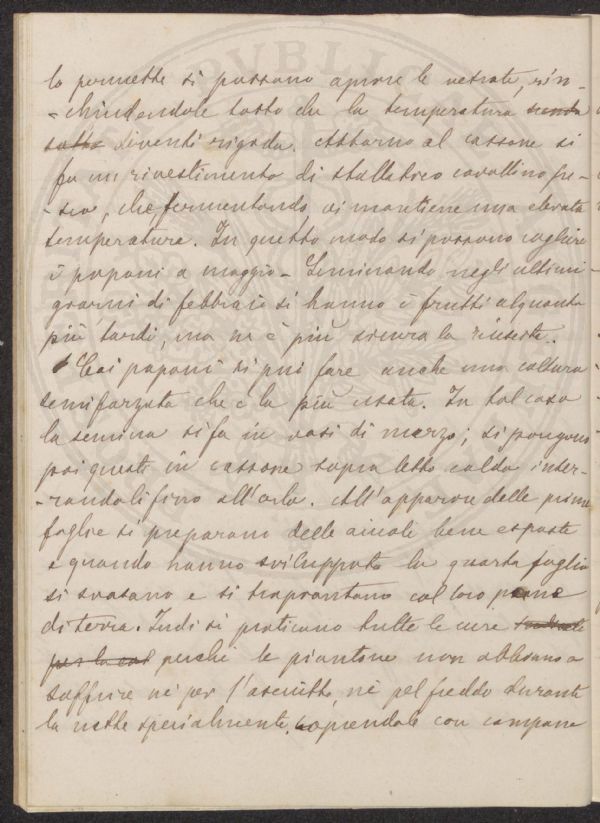 lo permette si possano aprire le vetrate, rin-
-chiudendole tosto che la temperatura
diventi rigida. Attorno al cassone si
fa un rivestimento di stallatico cavallino fre-
-sco, che fermentando, vi mantiene una elevata
temperatura. In questo modo si possono cogliere
i poponi a maggio - Seminando negli ultimi
giorni di febbraio si hanno i frutti alquanto
più tardi, ma ne è più sicura la riuscita.
Coi poponi si può fare anche una coltura
semiforzata che è la più usata. In tal caso
la semina si fa in vasi di marzo; si pongono
poi questi in cassone sopra letto caldo inter-
-randoli fino all'orlo. All'apparire delle prime
foglie si preparano delle aiuole bene esposte
e quando hanno sviluppato la quarta foglia
si svasano e si trapiantano col loro pane
di terra. Indi si praticano tutte le cure
perchè le piantine non abbiano a
soffrire nè per l'asciutto, nè pel freddo durante
la notte specialmente, coprendole con campane
PVBLIC